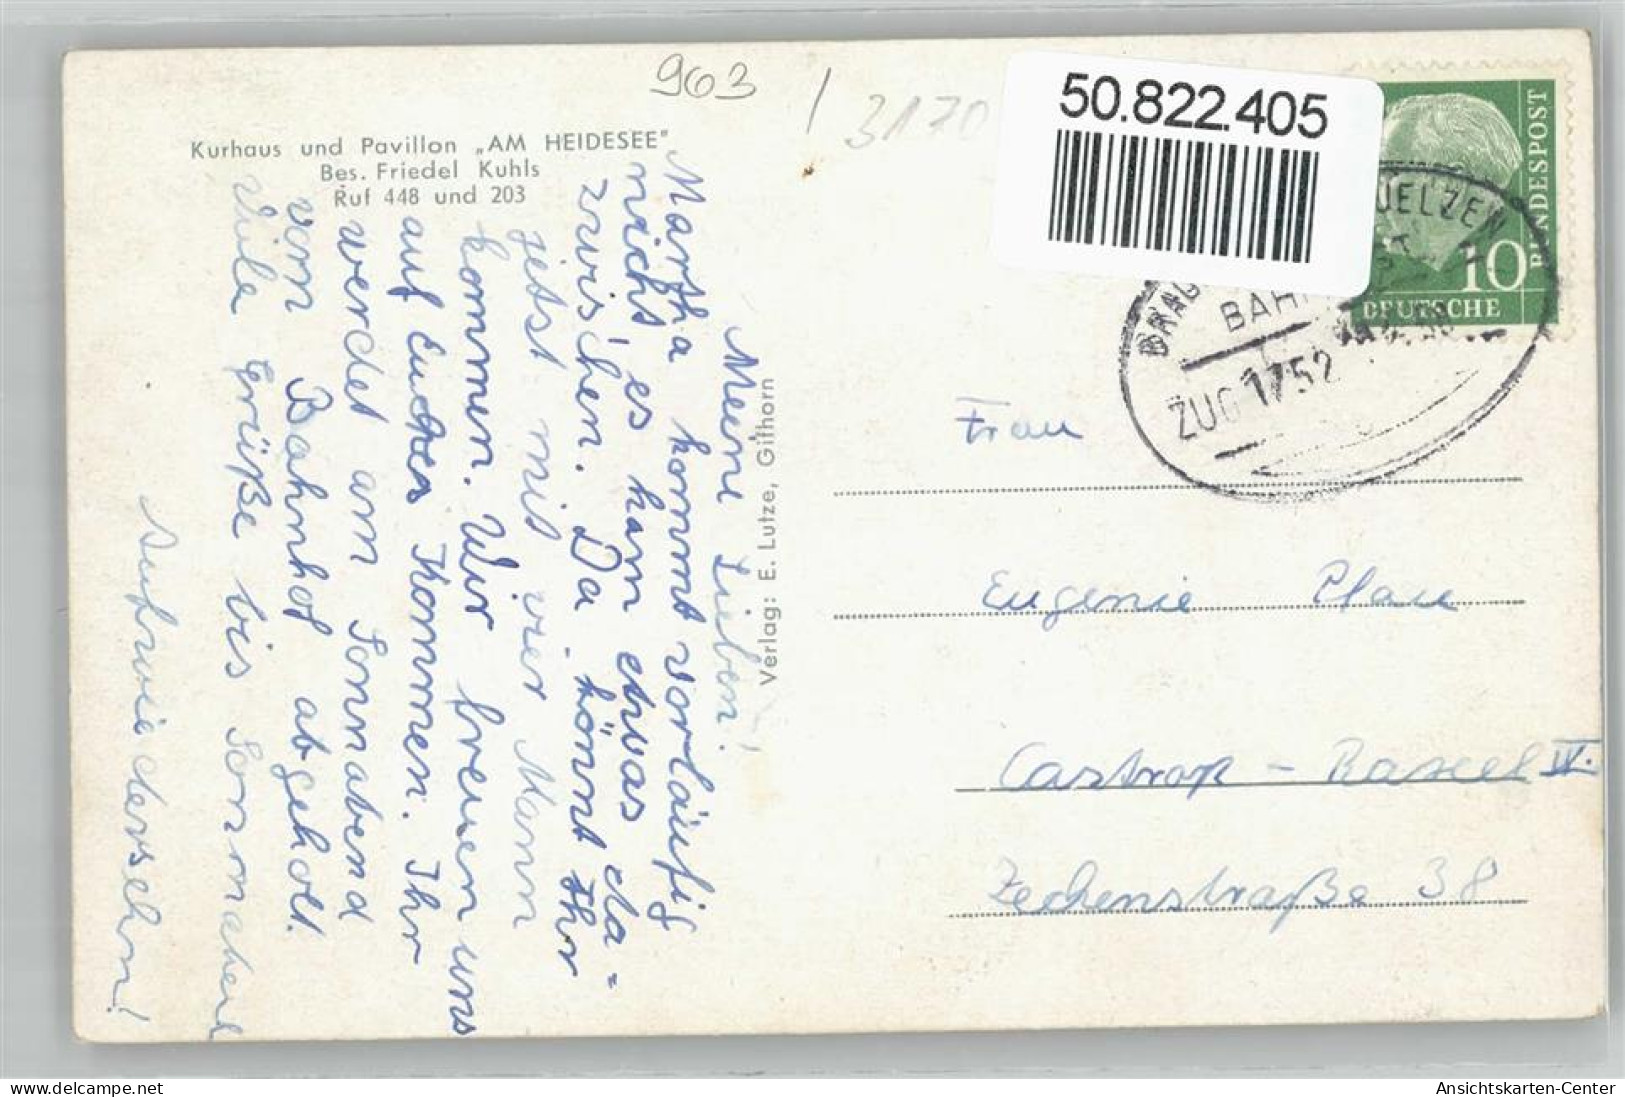 963
3170
50.822.405
Kurhaus und Pavillon „AM HEIDESEE"
Bes. Friedel Kuhls
Ruf 448 und 203
Meine Lieben!
Martha kommt vorläufig
nicht, es kam etwas da-
zwischen. Da könnt Ihr
jetzt mit vier Mann
kommen. Wir freuen uns
auf Euer Kommen. Ihr
werdet am Sonnabend
vom Bahnhof abgeholt.
Viele Grüße bis Sonnabend
Aufwiedersehn!
Verlag: E. Lutze, Gifhorn
BUNDESPOST
10
DEUTSCHE
UELZEN
ZUG 1752
Frau
Eugenie Plau
Castrop-Rauxel IV.
Zechenstraße 38
delcampe.net
Ansichtskarten-Center